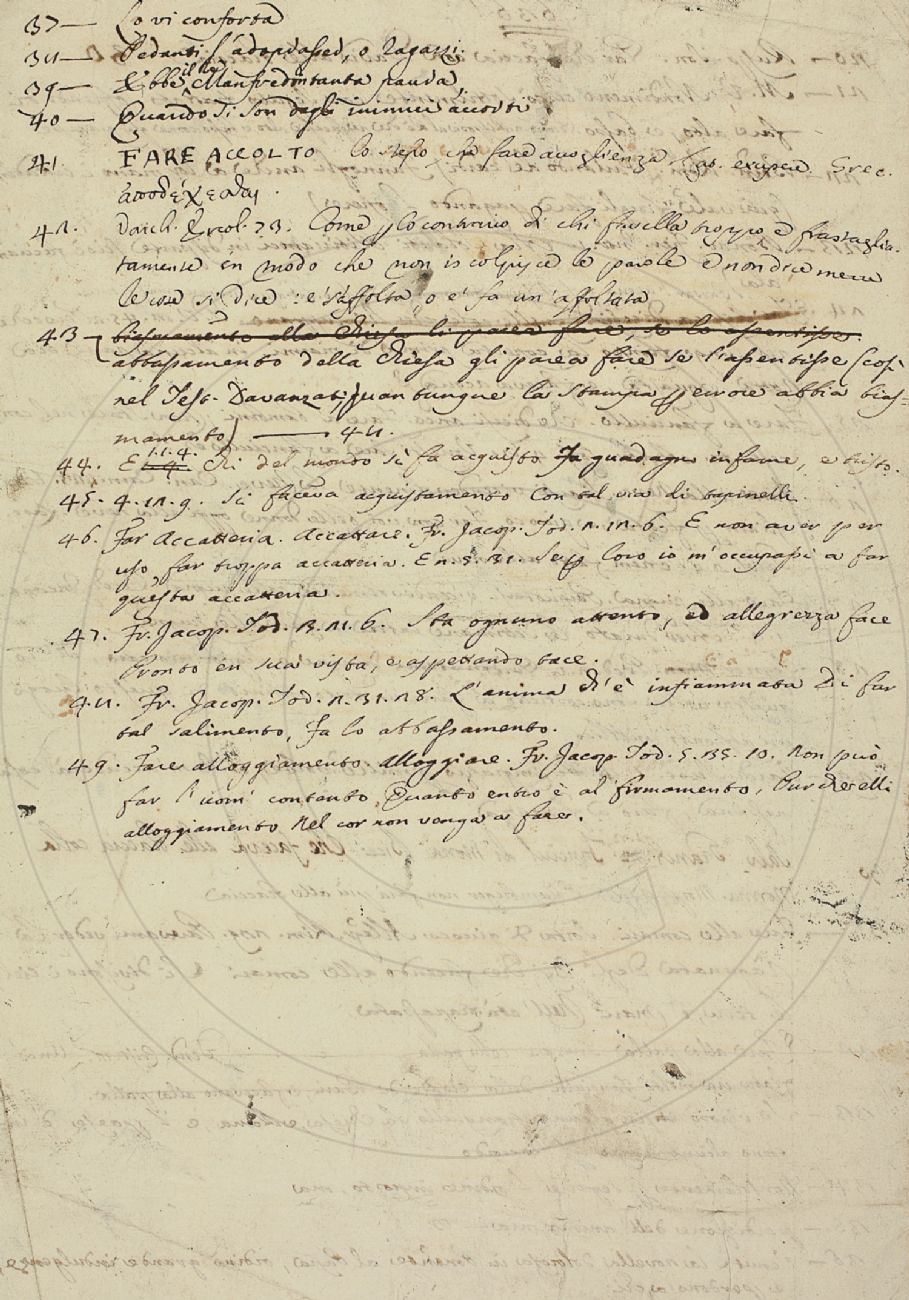 37— Lo vi conforta
38— Pedanti s'adoprassed, o Ragazzi.
39— Ebbe il Re Manfredi tanta paura,
40— Quando si son dagli inimici accorti
41. FARE ACCOLTO lo stesso, che fare accoglienza, Lat. excipere Grec.
ἀποδέχεσθαι.
42. Varch. Ercol. 73. Come p lo contrario di chi favella troppo e frastaglia-
tamente in modo che non iscolpisce le parole e non dice mezze
le cose si dice: e' s'affolta, o e' fa un'affoltata
43— biasmamento alla Chiesa li parea fare, se lo assentisse.
abbassamento della Chiesa gli parea fare se l'assentisse (così
nel Test. Davanzati, quantunque la stampa p errore abbia bias-
mamento) —— 48.
44. E 1.1.4. Chi del mondo si fa acquisto Fa guadagno infame, e tristo.
45. 4. 12. 9. Si faceva acquistamento Con tal via di tapinelli.
46. Far Accatteria. Accattare. Fr. Jacop. Tod. 2. 12. 6. E non aver per
uso far troppa accatteria. E 2. 5. 31. Se p loro io m'occupassi a far
questa accatteria.
47. Fr. Jacop. Tod. 6. Sta ognuno attento, ed allegrezza face
Pronto in sua vista, e aspettando tace.
48. Fr. Jacop. Tod. 2. 31. 28. L'anima ch'è infiammata Di far
tal salimento, Fa lo abbassamento.
49. Fare alloggiamento. alloggiare. Fr. Jacop. Tod. 5. 10. Non può
far l'uom contento Quanto entro è al firmamento, Purchè elli
alloggiamento Nel cor non venga a fare.